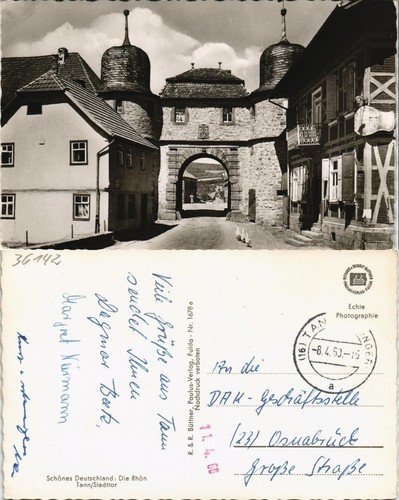 36142
Viele Grüße aus Tann
sendet Ihnen
Dagmar Beck,
Margret Niemann
Schönes Deutschland: Die Rhön
Tann/Stadttor
R. & R. Büttner, Paulus-Verlag, Fulda · Nr. 1678a
Nachdruck verboten
Echte
Photographie
(16) TANN
-8.4.60.-15
a
11.4.60
An die
DAK-Geschäftsstelle
(23) Osnabrück
Große Straße